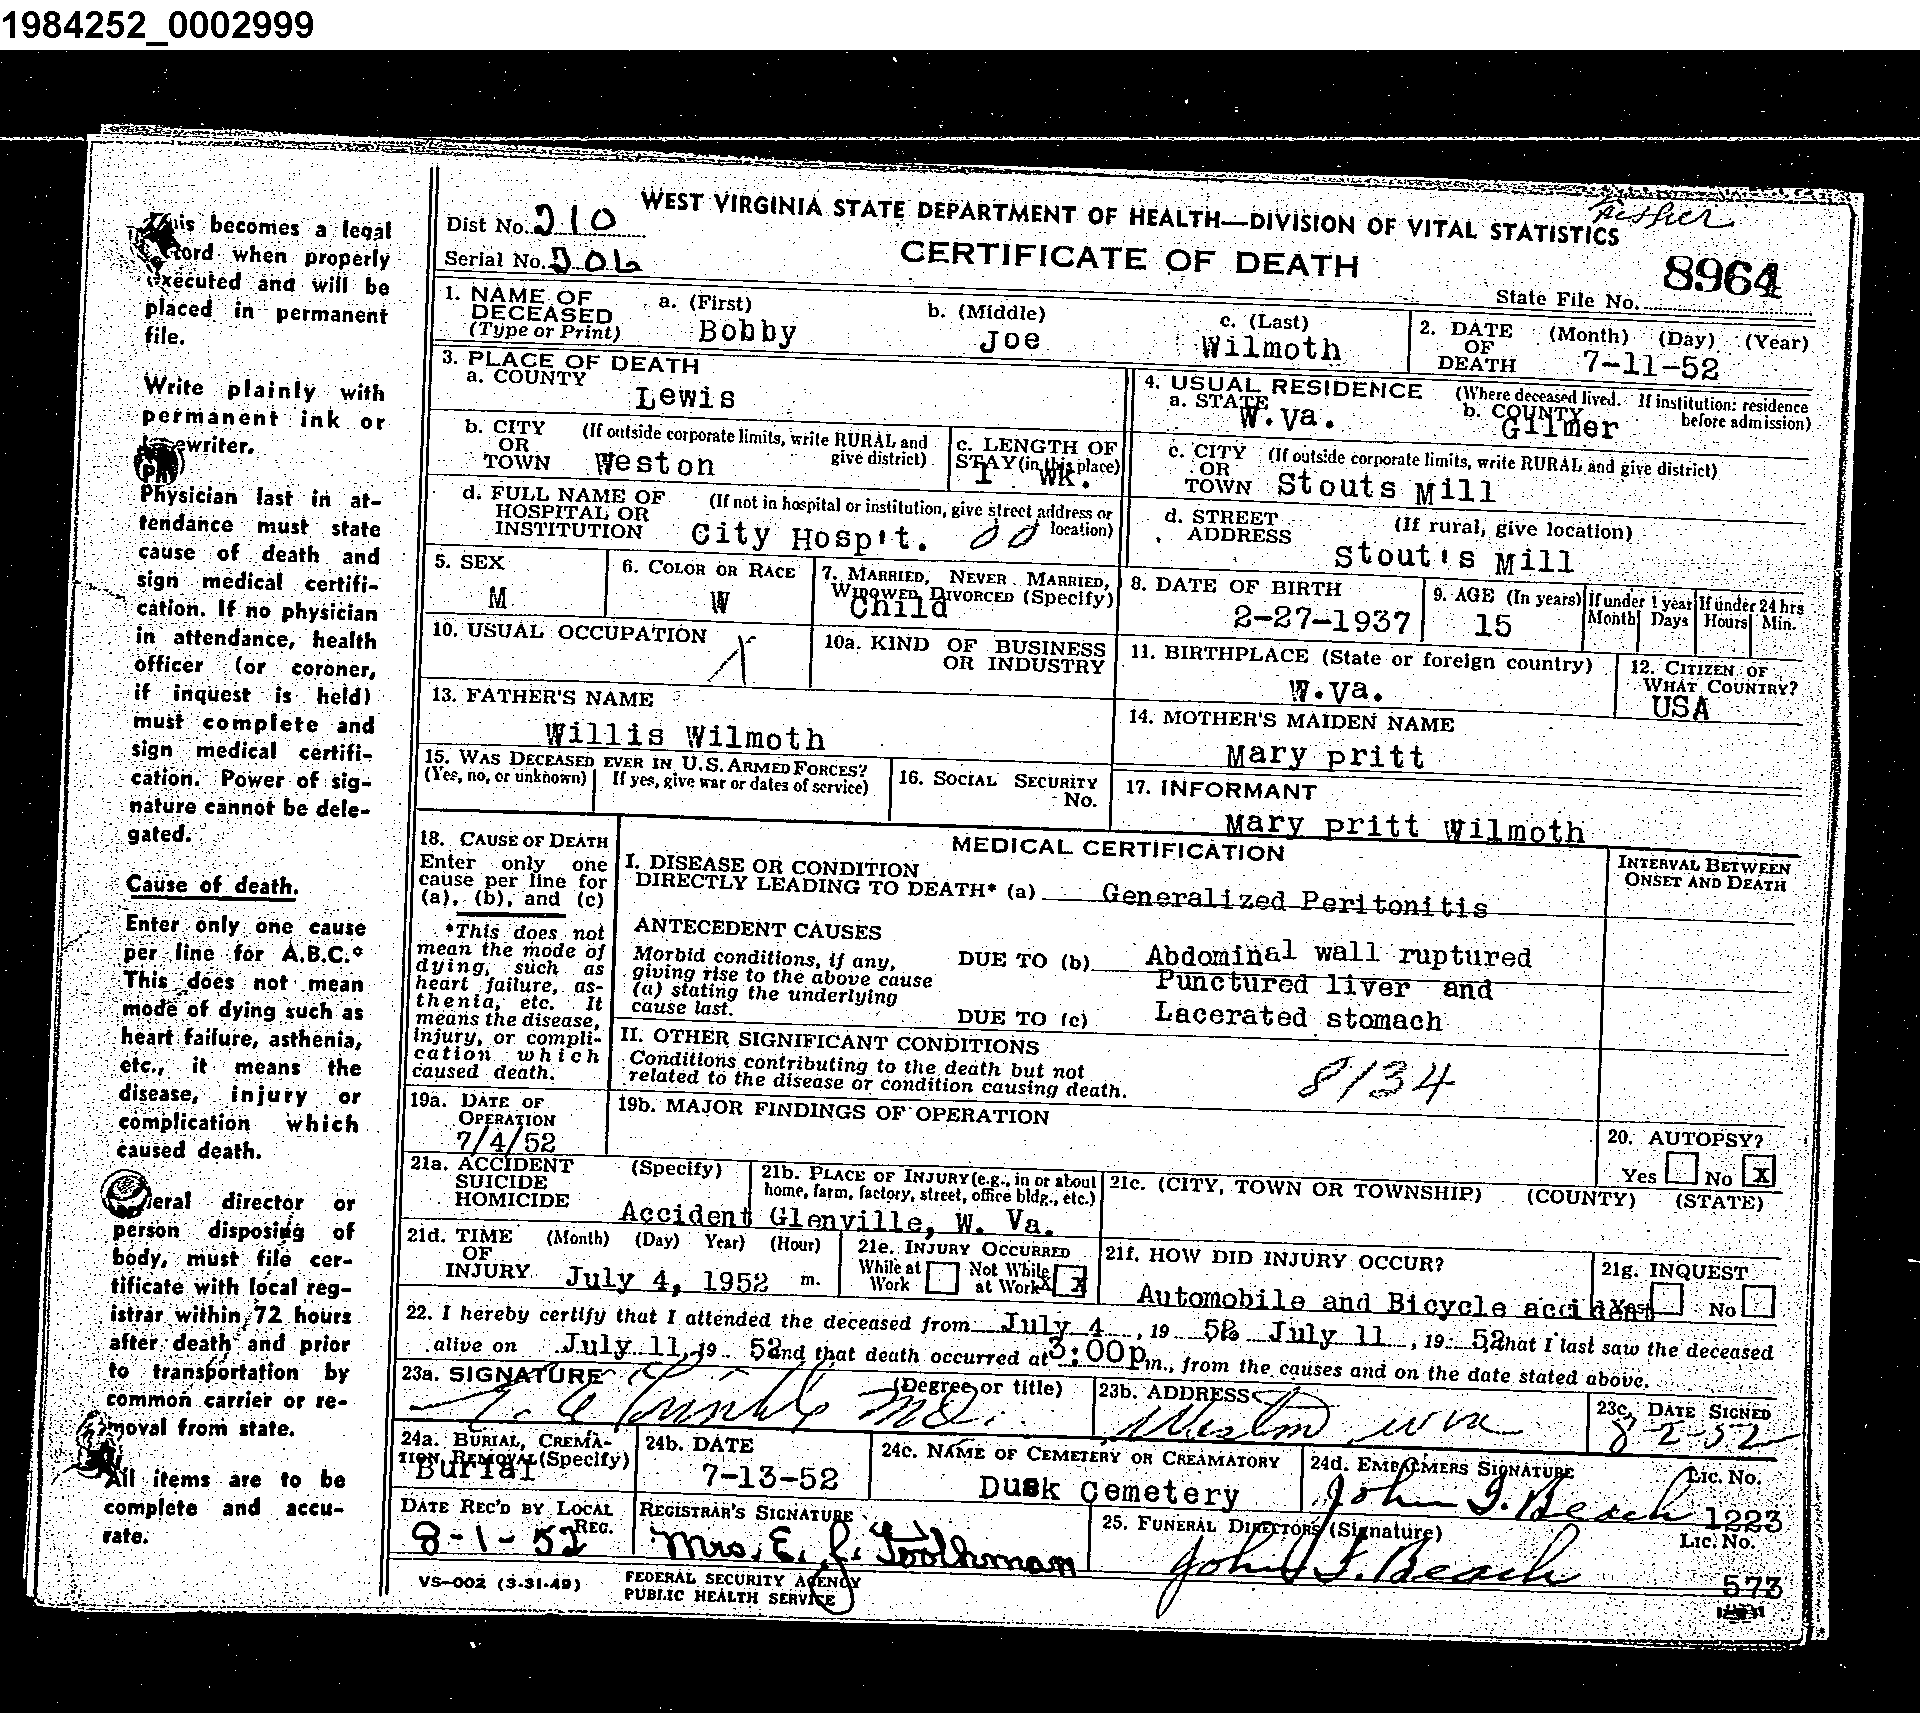 1984252_0002999
This becomes a legal
record when properly
executed and will be
placed in permanent
file.
Write plainly with
permanent ink or
typewriter.
Physician last in at-
tendance must state
cause of death and
sign medical certifi-
cation. If no physician
in attendance, health
officer (or coroner,
if inquest is held)
must complete and
sign medical certifi-
cation. Power of sig-
nature cannot be dele-
gated.
Cause of death.
Enter only one cause
per line for A.B.C.*
This does not mean
mode of dying such as
heart failure, asthenia,
etc., it means the
disease, injury or
complication which
caused death.
Funeral director or
person disposing of
body, must file cer-
tificate with local reg-
istrar within 72 hours
after death and prior
to transportation by
common carrier or re-
moval from state.
All items are to be
complete and accu-
rate.
Dist No. 210
Serial No. 206
WEST VIRGINIA STATE DEPARTMENT OF HEALTH—DIVISION OF VITAL STATISTICS
CERTIFICATE OF DEATH
8964
State File No.
1. NAME OF DECEASED (Type or Print)
a. (First) Bobby
b. (Middle) Joe
c. (Last) Wilmoth
2. DATE OF DEATH (Month) (Day) (Year)
7-11-52
3. PLACE OF DEATH
a. COUNTY Lewis
b. CITY OR TOWN (If outside corporate limits, write RURAL and give district) Weston
c. LENGTH OF STAY (in this place) 1 Wk.
d. FULL NAME OF HOSPITAL OR INSTITUTION (If not in hospital or institution, give street address or location)
City Hosp't. 00
4. USUAL RESIDENCE (Where deceased lived. If institution: residence before admission)
a. STATE W.Va.
b. COUNTY Gilmer
c. CITY OR TOWN (If outside corporate limits, write RURAL and give district)
Stouts Mill
d. STREET ADDRESS (If rural, give location)
Stout's Mill
5. SEX M
6. COLOR OR RACE W
7. MARRIED, NEVER MARRIED, WIDOWED DIVORCED (Specify) Child
8. DATE OF BIRTH 2-27-1937
9. AGE (In years) 15
If under 1 year Month Days
If under 24 hrs Hours Min.
10. USUAL OCCUPATION X
10a. KIND OF BUSINESS OR INDUSTRY
11. BIRTHPLACE (State or foreign country) W.Va.
12. CITIZEN OF WHAT COUNTRY? USA
13. FATHER'S NAME
Willis Wilmoth
14. MOTHER'S MAIDEN NAME
Mary pritt
15. WAS DECEASED EVER IN U.S. ARMED FORCES?
(Yes, no, or unknown) If yes, give war or dates of service)
16. SOCIAL SECURITY No.
17. INFORMANT
Mary pritt Wilmoth
18. CAUSE OF DEATH
Enter only one
cause per line for
(a), (b), and (c)
*This does not
mean the mode of
dying, such as
heart failure, as-
thenia, etc. It
means the disease,
injury, or compli-
cation which
caused death.
MEDICAL CERTIFICATION
INTERVAL BETWEEN ONSET AND DEATH
I. DISEASE OR CONDITION
DIRECTLY LEADING TO DEATH* (a) Generalized Peritonitis
ANTECEDENT CAUSES
Morbid conditions, if any,
giving rise to the above cause
(a) stating the underlying
cause last.
DUE TO (b) Abdominal wall ruptured
Punctured liver and
DUE TO (c) Lacerated stomach
II. OTHER SIGNIFICANT CONDITIONS
Conditions contributing to the death but not
related to the disease or condition causing death.
8134
19a. DATE OF OPERATION
7/4/52
19b. MAJOR FINDINGS OF OPERATION
20. AUTOPSY?
Yes No X
21a. ACCIDENT SUICIDE HOMICIDE (Specify)
Accident
21b. PLACE OF INJURY (e.g., in or about home, farm, factory, street, office bldg., etc.)
Glenville, W. Va.
21c. (CITY, TOWN OR TOWNSHIP) (COUNTY) (STATE)
21d. TIME OF INJURY (Month) (Day) Year) (Hour)
July 4, 1952 m.
21e. INJURY OCCURRED
While at Work Not While at Work X
21f. HOW DID INJURY OCCUR?
Automobile and Bicycle accident
21g. INQUEST
Yes No
22. I hereby certify that I attended the deceased from July 4, 19 52 July 11, 19 52 that I last saw the deceased
alive on July 11, 19 52 and that death occurred at 3:00 p m., from the causes and on the date stated above.
23a. SIGNATURE (Degree or title)
M.D.
23b. ADDRESS
Weston W Va
23c. DATE SIGNED
8-2-52
24a. BURIAL, CREMATION REMOVAL (Specify)
Burial
24b. DATE
7-13-52
24c. NAME OF CEMETERY OR CREAMATORY
Dusk Cemetery
24d. EMBALMERS SIGNATURE Lic. No.
John F. Beach 1223
DATE REC'D BY LOCAL REG.
8-1-52
REGISTRAR'S SIGNATURE
Mrs. E. J. Toothman
25. FUNERAL DIRECTORS (Signature) Lic. No.
John F. Beach
573
VS-002 (3-31-49)
FEDERAL SECURITY AGENCY
PUBLIC HEALTH SERVICE